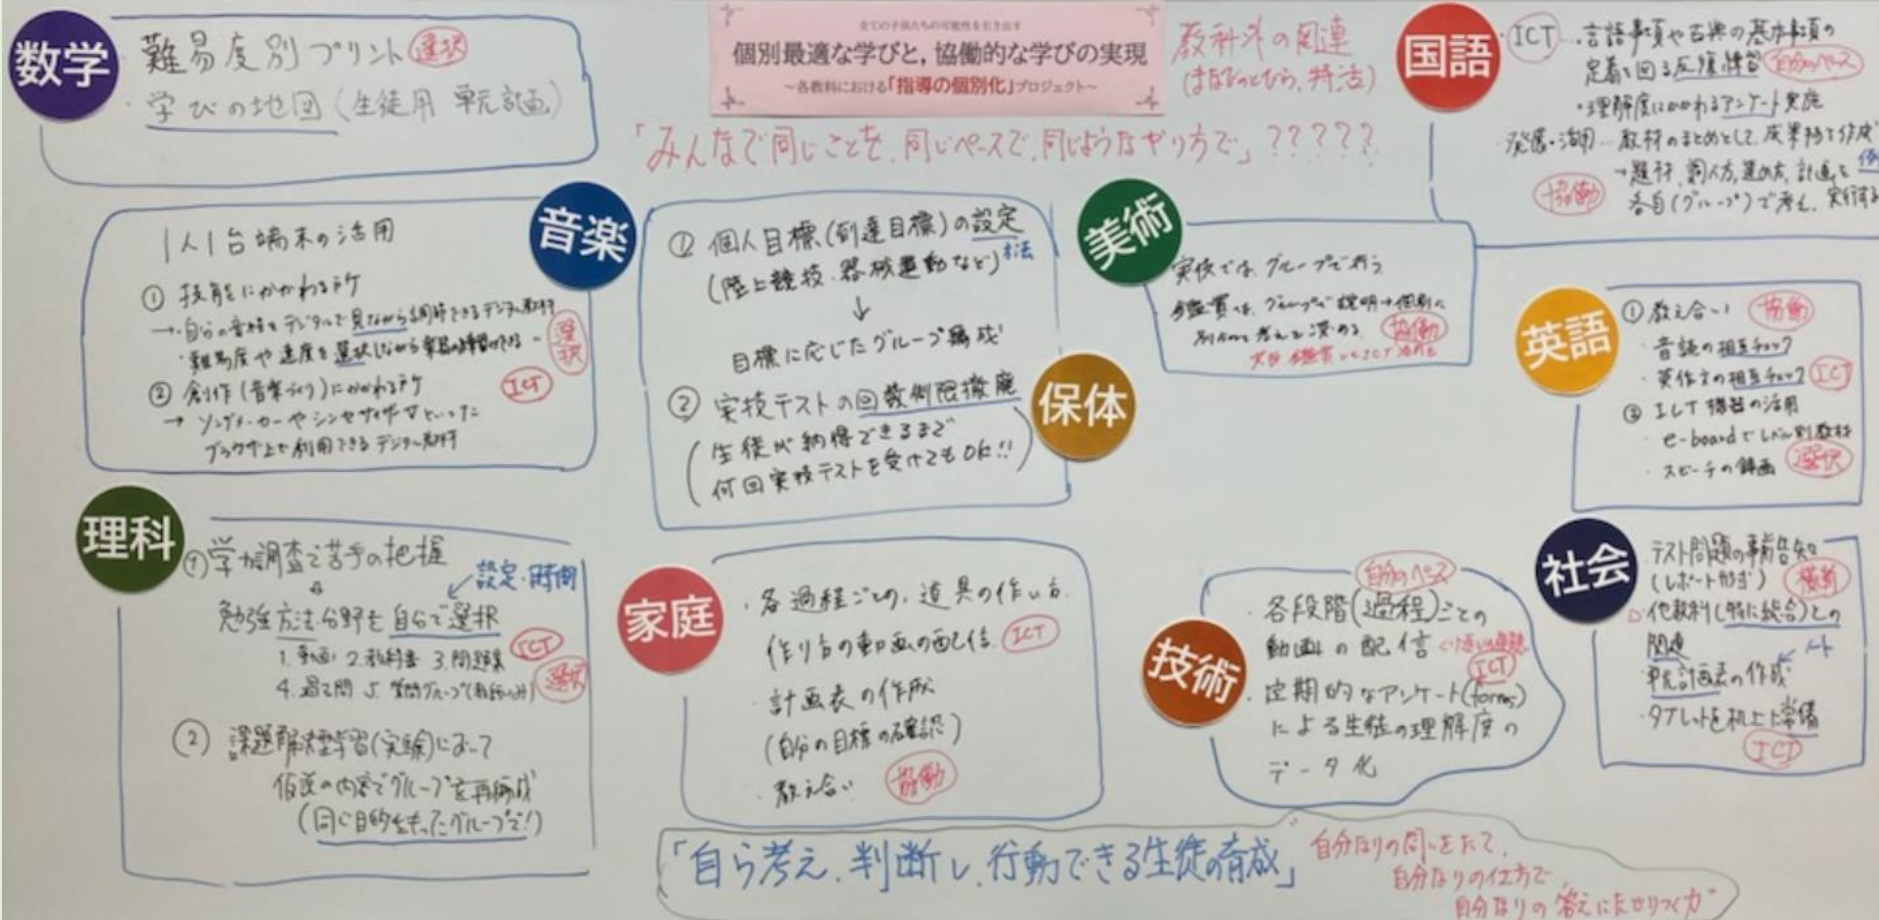 全ての子供たちの可能性を引き出す
個別最適な学びと，協働的な学びの実現
～各教科における「指導の個別化」プロジェクト～
教科外の関連
(まなびのとびら, 特活)
「みんなで同じことを、同じペースで、同じようなやり方で」?????
数学
難易度別プリント 選択
・学びの地図(生徒用 単元計画)
国語
ICT ・言語事項や古典の基本事項の
定着を図る反復練習 自分のペース
・理解度にかかわるアンケート実施
発展・活用…教材のまとめとして、成果物を作成
→題材、調べ方、進め方、計画を
各自(グループ)で考え、実行する
協働
音楽
1人1台端末の活用
① 技能にかかわるㄗケ
→・自分の音程をデジタルで見ながら調節できるデジタル教材
・難易度や速度を選択しながら
選択
② 創作(音楽づくり)にかかわる
ICT
→ ソングメーカーやシンセサイザーなどといった
ブラウザ上で利用できるデジタル教材
保体
① 個人目標(到達目標)の設定
(陸上競技・器械運動など) 方法
↓
目標に応じたグループ編成
② 実技テストの回数制限撤廃
(生徒が納得できるまで
何回実技テストを受けてもOK!!)
美術
実技では、グループで行う
鑑賞は、グループで説明→個別に
考えを深める。 協働
英語
① 教え合い 協働
・音読の相互チェック
・英作文の相互チェック ICT
② ICT機器の活用
・e-boardでレベル別教材
・スピーチの録画 選択
理科
① 学力調査で苦手の把握
↓ 設定・時間
勉強方法・分野を自分で選択
1. 動画 2. 教科書 3. 問題集 ICT
4. 過去問 5. 質問グループ 選択
② 課題解決型学習(実験)において
仮説の内容でグループを再編成
(同じ目的をもったグループで!)
家庭
・各過程ごとの、道具の使い方、
作り方の動画の配信 ICT
・計画表の作成
(自分の目標の確認)
・教え合い 協働
技術
自分のペース
・各段階(過程)ごとの
動画の配信
ICT
・定期的なアンケート(forms)
による生徒の理解度の
データ化
社会
テスト問題の事前告知
(レポート形式) 横断
他教科(特に総合)との
関連
・単元計画表の作成
・タブレットを机上に常備
ICT
「自ら考え、判断し、行動できる生徒の育成」
自分なりの問いをたて、
自分なりの仕方で
自分なりの答えにたどりつく力